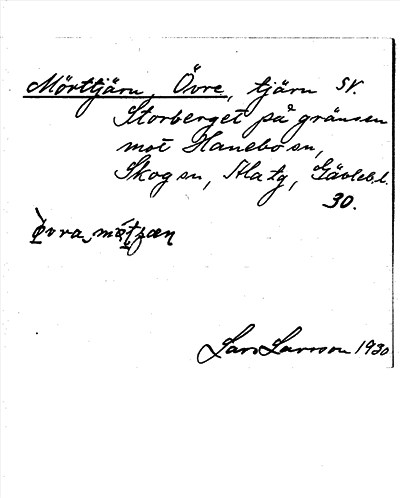 Mörttjärn, Övre, tjärn SV.
Storberget på gränsen
mot Hanebo sn,
Skog sn, Ala tg, Gävleb.l.
30.
Lars Larsson 1930